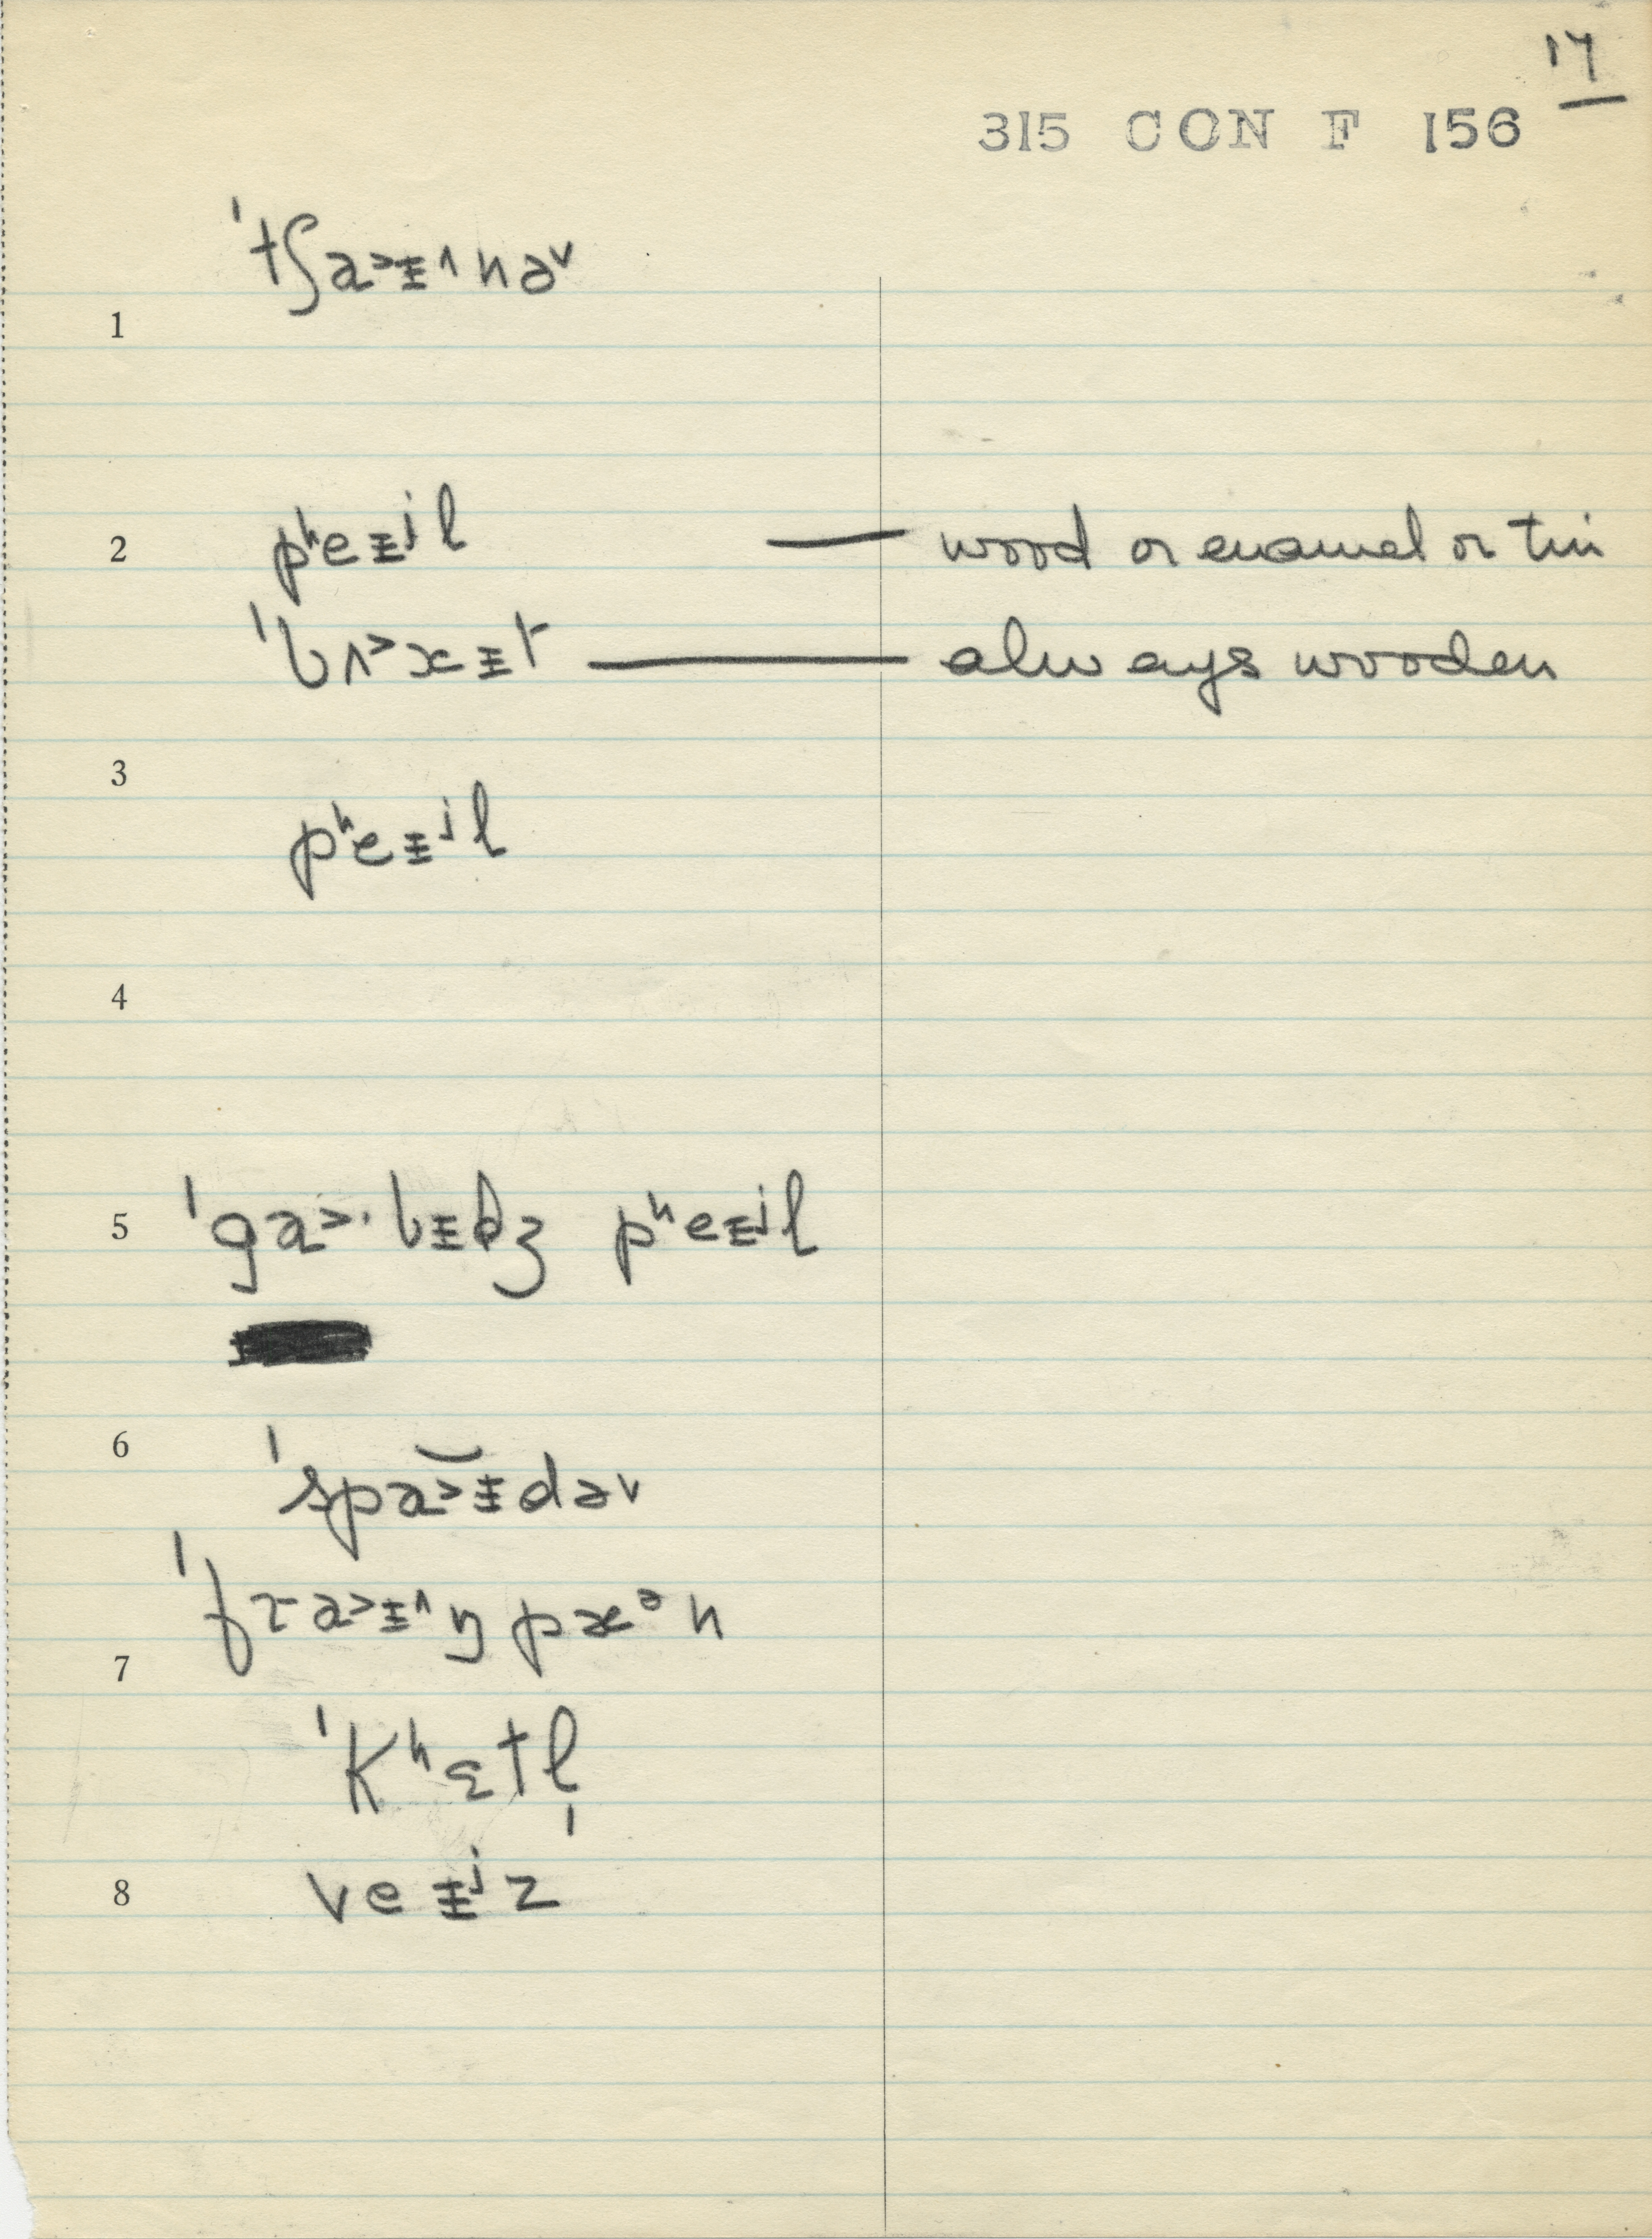 17
315 CON F 156
ˈtʃa˃ɪ̵^nə˅
1
2 pʰeɪ̵ʲl — wood or enamel or tin
ˈbʌ˃kɪ̵t — always wooden
3
pʰeɪ̵ʲl
4
5 ˈga˃·bɪ̵dʒ pʰeɪ̵ʲl
6
ˈspa˃ɪ̵də˅
ˈfra˃ɪ̵^ŋpæᵊn
7
ˈkʰɛtl̩
8 veɪ̵ʲz